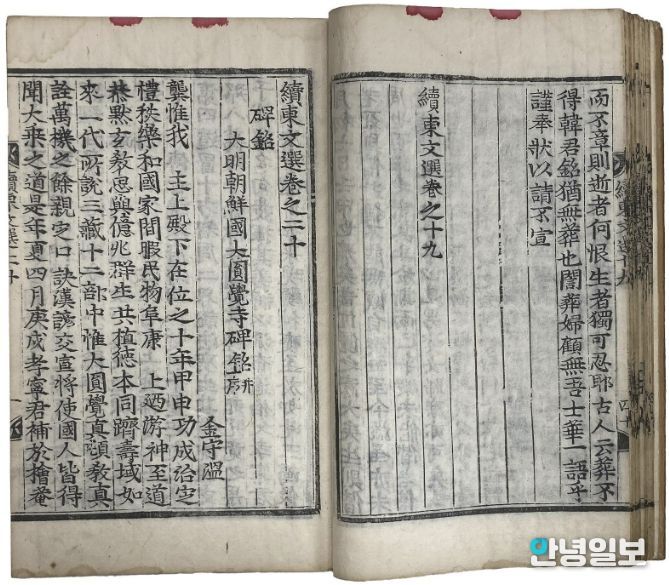 而不章則逝者何恨生者獨可忍耶古人云葬不
得韓君銘猶無葬也闇葬婦顧無吾士華一語乎
謹奉狀以請不宣
續東文選卷之十九
續東文選卷之二十
碑銘
大明朝鮮國大圓覺寺碑銘 幷序
金守溫
龔惟我 主上殿下在位之十年甲申功成治定
禮秩樂和國家閒暇民物阜康 上迺游神至道
恭默玄敎思與億兆群生共植德本同躋壽域如
來一代所說三藏十二部中惟大圓覺眞頓敎眞
詮萬機之餘親定口訣漢諺交宣將使國人皆得
聞大乘之道是年夏四月庚戌孝寧君補於檜菴
續東文選十九
續東文選二十
안녕일보